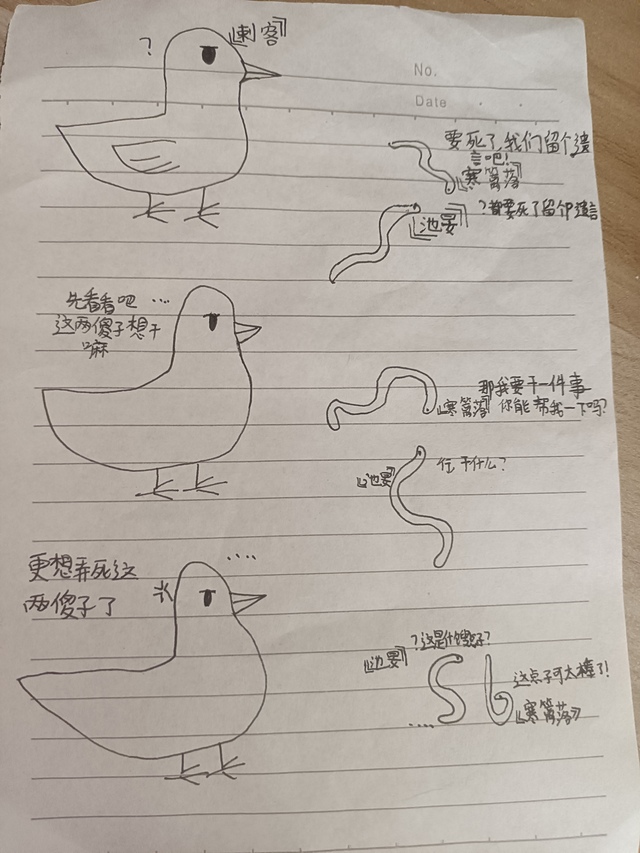 ？
『刺客』
No.
Date
要死了，我们留个遗
言吧！
『寒篱落』
？都要死了留个遗言
『池晏』
先看看吧 …
这两傻子想干
嘛
那我要干一件事
『寒篱落』你能帮我一下吗？
『池晏』
干什么？
....
更想弄死这
两傻子了
？这是什么点子？
『池晏』
Sb
这点子可太棒了！
『寒篱落』
....